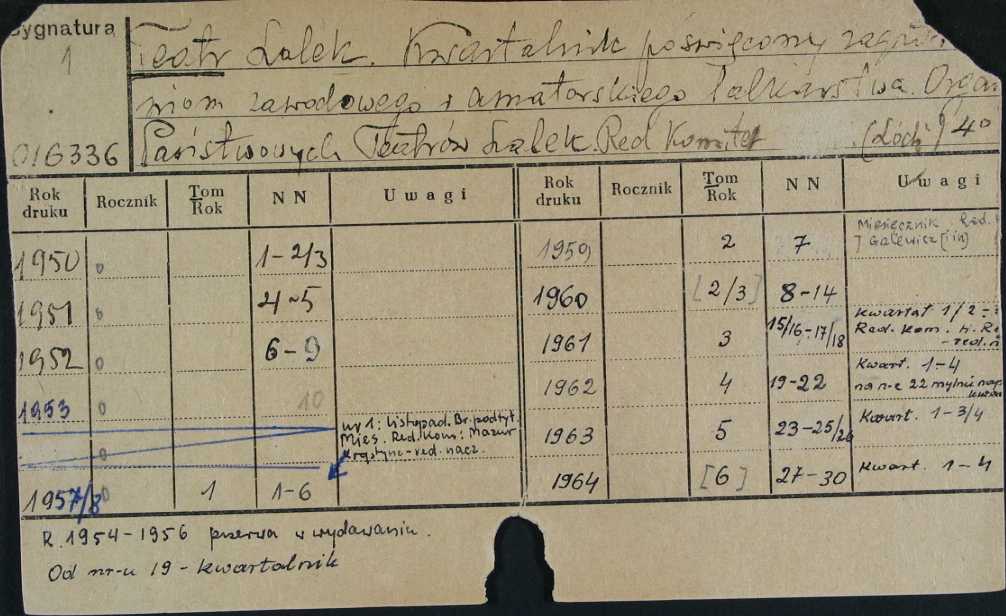 Sygnatura
1
016336
Teatr Lalek. Kwartalnik poświęcony
niom zawodowego i amatorskiego lalkarstwa. Organ
Państwowych Teatrów Lalek. Red Komitet (Łódź) 4°
Rok druku Rocznik Tom Rok NN Uwagi Rok druku Rocznik Tom Rok NN Uwagi
1950 0 1-2/3
1951 0 4-5
1952 0 6-9
1953 0 10
0 nr 1: listopad. Br. podtyt.
Mies. Red. Kom: Mazur
Krystyna-red. nacz.
1957/8 0 1 1-6
1959 2 7 Miesięcznik Red.
J Galewicz [i in]
1960 [2/3] 8-14
1961 3 15/16-17/18 Kwartał 1/2
Red. kom.
1962 4 19-22 Kwart. 1-4
na n-e 22 mylnie
1963 5 23-25/26 Kwart. 1-3/4
1964 [6] 27-30 Kwart. 1-4
R. 1954-1956 przerwa w wydawaniu.
Od nr-u 19 - kwartalnik